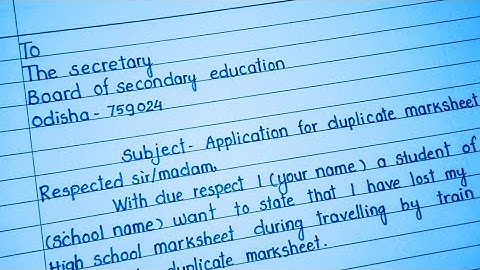 To
The secretary
Board of secondary education
Odisha - 759024
Subject - Application for duplicate marksheet
Respected sir/madam,
With due respect I (your name) a student of
(school name) want to state that I have lost my
High school marksheet during travelling by train
duplicate marksheet.